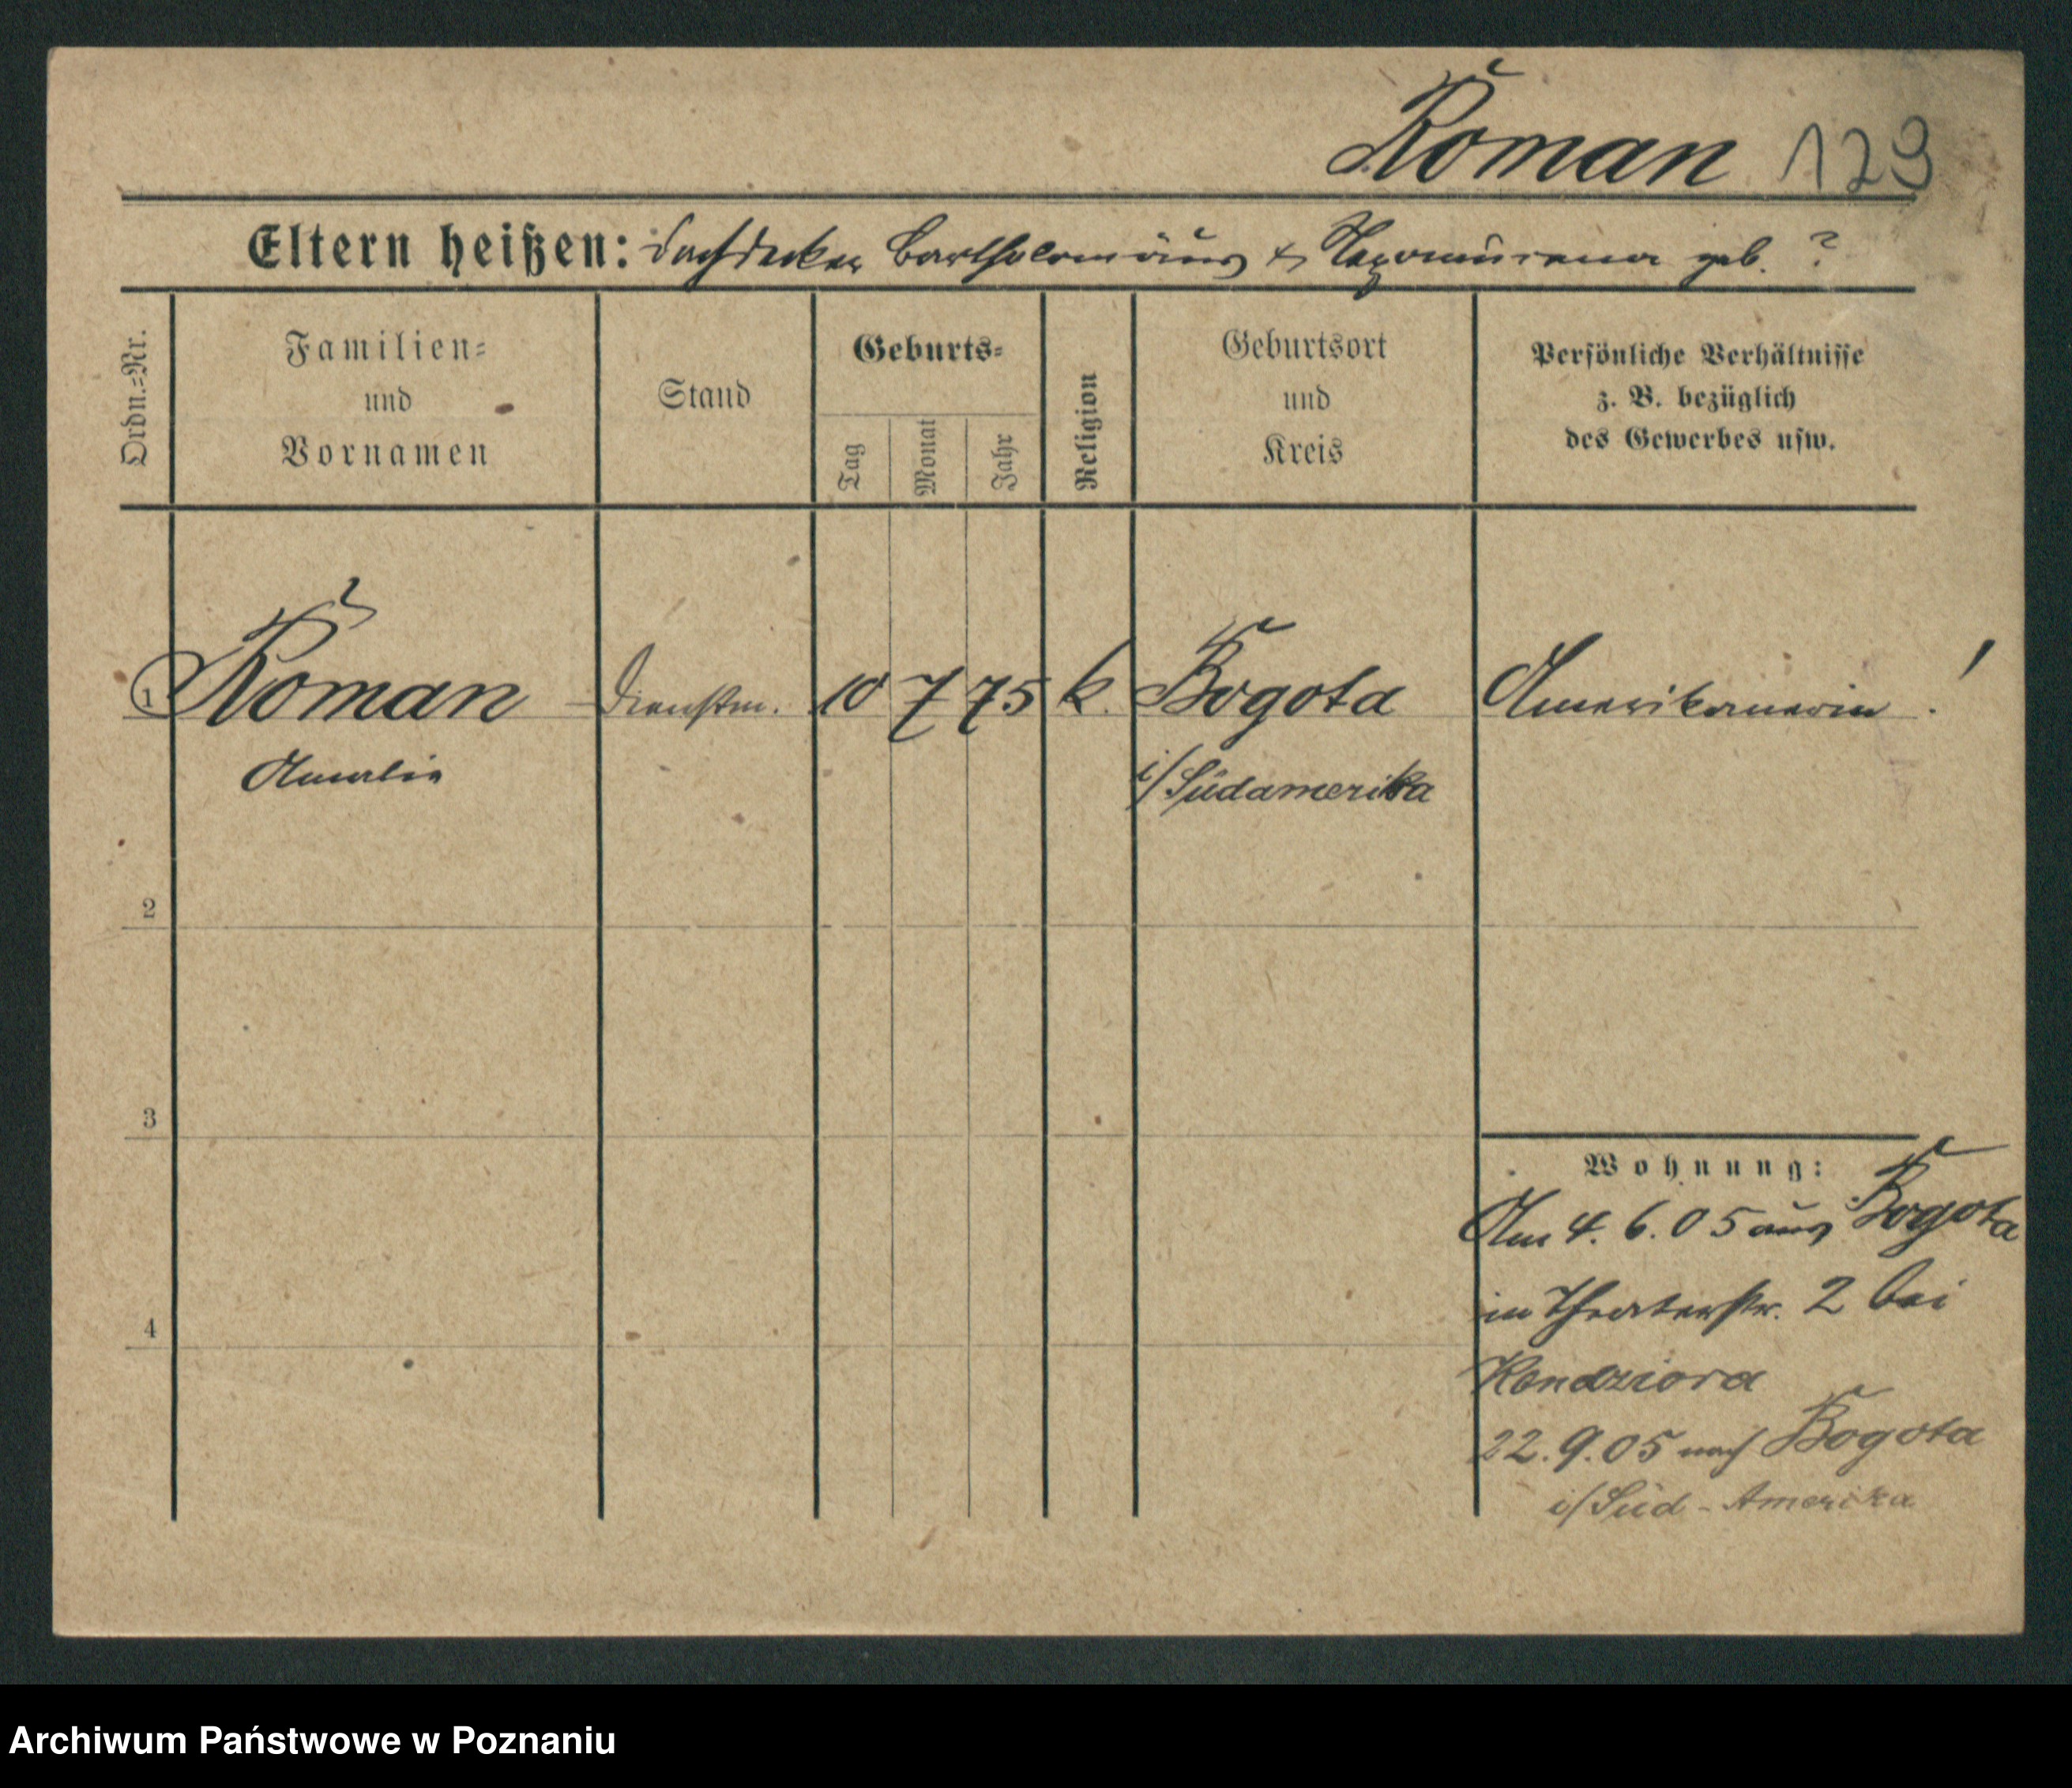 Roman 129
Eltern heißen: Dachdecker Bartholomäus & Nepomucena geb. ?
Ordn.=Nr.
Familien=
und
Vornamen
Stand
Geburts=
Tag
Monat
Jahr
Religion
Geburtsort
und
Kreis
Persönliche Verhältnisse
z. B. bezüglich
des Gewerbes usw.
1 Roman Dienstm. 10 7 75 k. Bogota Amerikanerin !
Amalie i/Südamerika
2
3
4
Wohnung:
Am 4. 6. 05 aus Bogota
in Theaterstr. 2 bei
Kendziora
22. 9. 05 nach Bogota
i/Süd - Amerika
Archiwum Państwowe w Poznaniu